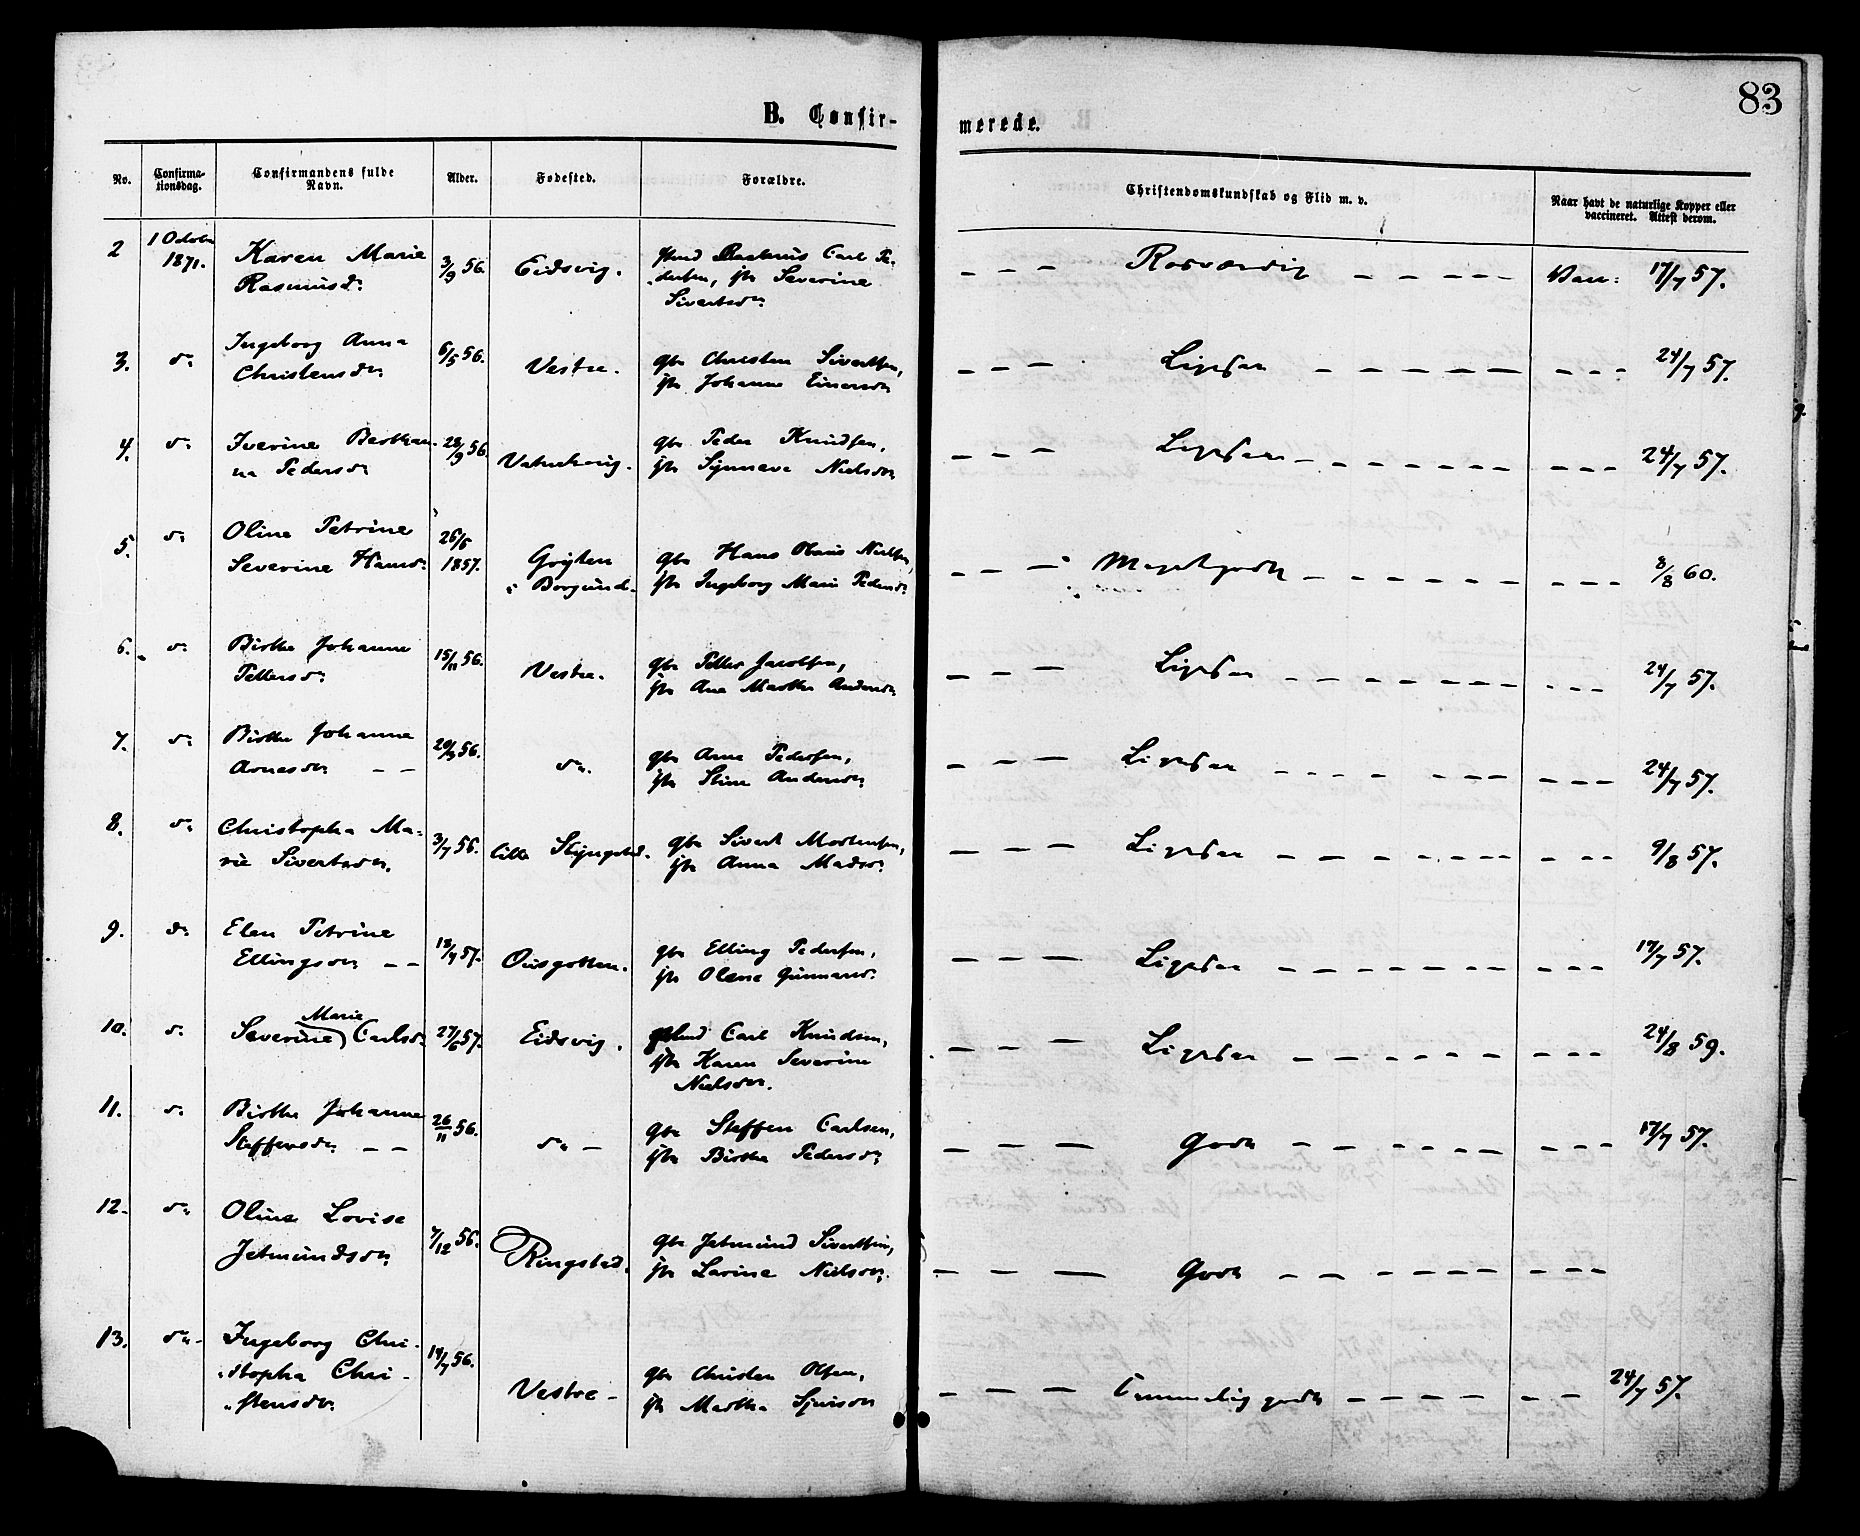 83
B. Confir-
merede.
No.
Confirma-
tionsdag.
Confirmandens fulde
Navn.
Alder.
Fødested.
Forældre.
Christendomskundskab og Flid m. v.
Naar havt de naturlige Kopper eller
vaccineret. Attest derom.
2
1 October
1871.
Karen Marie
Rasmusdr
3/9 56.
Eidsvig.
Carl Pe-
dersen, ffr Severine
Sivertsdr
Rosværdig
Vacc: 17/7 57.
3.
dr
Ingeborg Anna
Christensdr
6/5 56.
Vestre.
gbr Christen Sivertsen,
ffr Johanne Einersdr
Ligesaa
24/7 57.
4.
dr
Iverine Berthan-
na Pedersdr
28/9 56.
gbr Peder Knudsen,
ffr Synneve Nielsdr
Ligesaa
24/7 57.
5.
dr
Oline Petrine
Severine Hansdr
26/5
1857.
Grytten
i Borgund.
gbr Hans Olaus Nielsen,
ffr Ingeborg Marie Pedersdr
Meget godt
8/8 60.
6.
dr
Birthe Johanne
Pettersdr
15/11 56.
Vestre.
gbr Petter Jacobsen,
ffr Ane Marthe Andersdr
Ligesaa
24/7 57.
7.
dr
Birthe Johanne
Arnesdr
20/9 56.
dr.
gbr Arne Pedersen,
ffr Stine Andersdr
Ligesaa
24/7 57.
8.
dr
Christopha Ma-
rie Sivertsdr.
3/7 56.
lille
gbr Sivert Mortensen,
ffr Anna Madsdr
Ligesaa
9/8 57.
9.
dr
Elen Petrine
Ellingsdr
18/4 57.
gbr Elling Pedersen,
ffr Olene Gunnarsdr
Ligesaa
17/7 57.
10.
dr
Marie
Severine) Carlsdr
27/6 57.
Eidsvig.
Carl Knudsen,
ffr Karen Severine
Nielsdr.
Ligesaa
24/8 59.
11.
dr
Birthe Johanne
Steffensdr
26/11 56.
dr
gbr Steffen Carlsen,
ffr Birthe Pedersdr
Godt
17/7 57.
12.
dr
Oline Lovise
Jetmundsdr
7/12 56.
Ringstad.
gbr Jetmund Sivertsen,
ffr Larine Nielsdr.
Godt
13.
dr
Ingeborg Chri-
stopha Chri-
stensdr.
19/7 56.
Vestre
gbr Christen Olsen,
ffr Marthe Sjursdr
Temmelig godt
24/7 57.